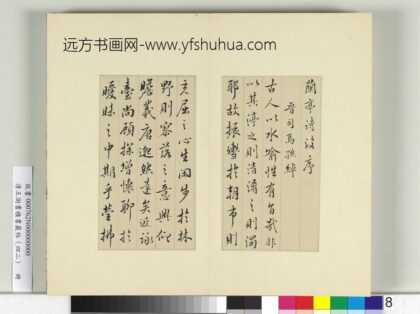 远方书画网-www.yfshuhua.com
蘭亭詩後序
晉司馬孫綽
古人以水喻性有旨哉非
以其渟之則清淆之則濁
耶故振轡於朝市則
充屈之心生閑步於林
野則寥落之意興仰
瞻羲唐邈然遠矣近詠
臺尚顧探增懷聊於
曖昧之中期乎瑩拂
清王澍書積書巖帖(四二) 冊
8